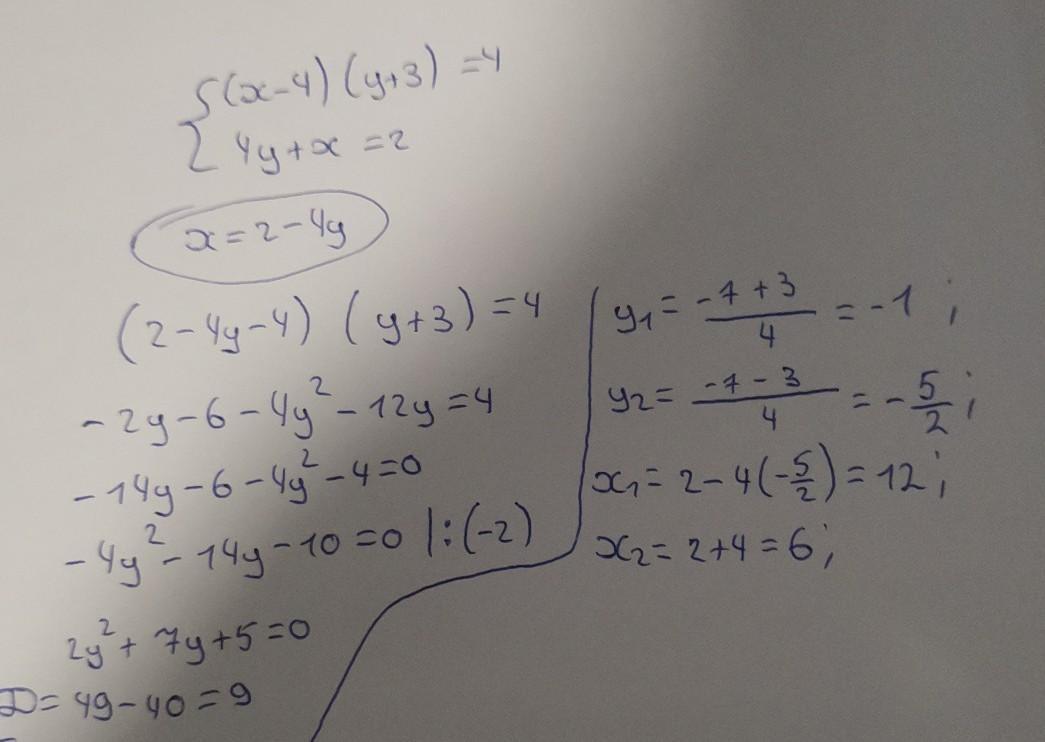 {(x-4)(y+3)=4
{4y+x=2
x=2-4y
(2-4y-4)(y+3)=4
-2y-6-4y²-12y=4
-14y-6-4y²-4=0
-4y²-14y-10=0 |:(-2)
2y²+7y+5=0
D=49-40=9
y₁=(-7+3)/4=-1;
y₂=(-7-3)/4=-5/2;
x₁=2-4(-5/2)=12;
x₂=2+4=6;